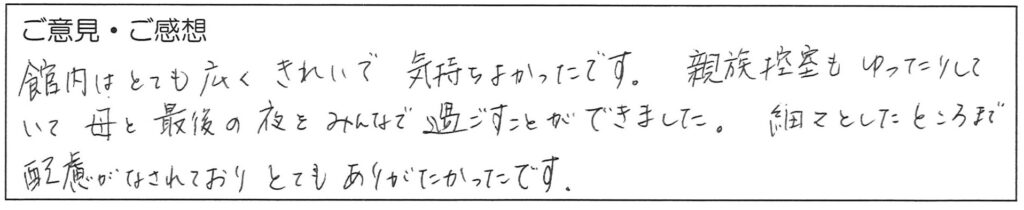 ご意見・ご感想
館内はとても広く きれいで 気持ちよかったです。 親族控室も ゆったりして
いて 母と最後の夜を みんなで過ごすことが できました。 細々としたところまで
配慮がなされており とても ありがたかったです.